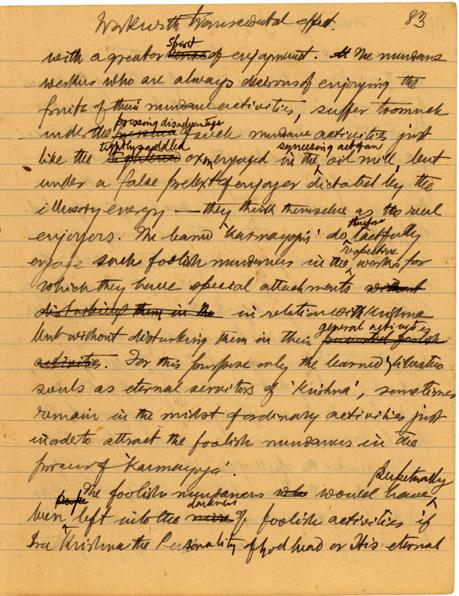 Work with transcendental effect. 83
with a greater spirit of enjoyment. The mundane
workers who are always desirous of enjoying the
fruits of their mundane activities, suffer too much
under the pressing disadvantage of such mundane activities just
like the tightly saddled oxen engaged in the squeezing act of an oil mill, but
under a false pretext of enjoyer dictated by the
illusory energy — they think themselves as the real
enjoyers. The learned 'Karmayogis' do therefore tactfully
engage such foolish mundaners in the respective works for
which they have special attachments without
disturbing them in the in relation with Krishna
but without disturbing them in their general activities
activities. For this purpose only the learned liberated
souls as eternal servitors of 'Krishna', sometimes
remain in the midst of ordinary activities just
in order to attract the foolish mundaners in the
process of 'Karmayoga'.
The foolish mundaners who would have Perpetually
been left into the darkness of foolish activities if
Sri Krishna the Personality of Godhead or His eternal